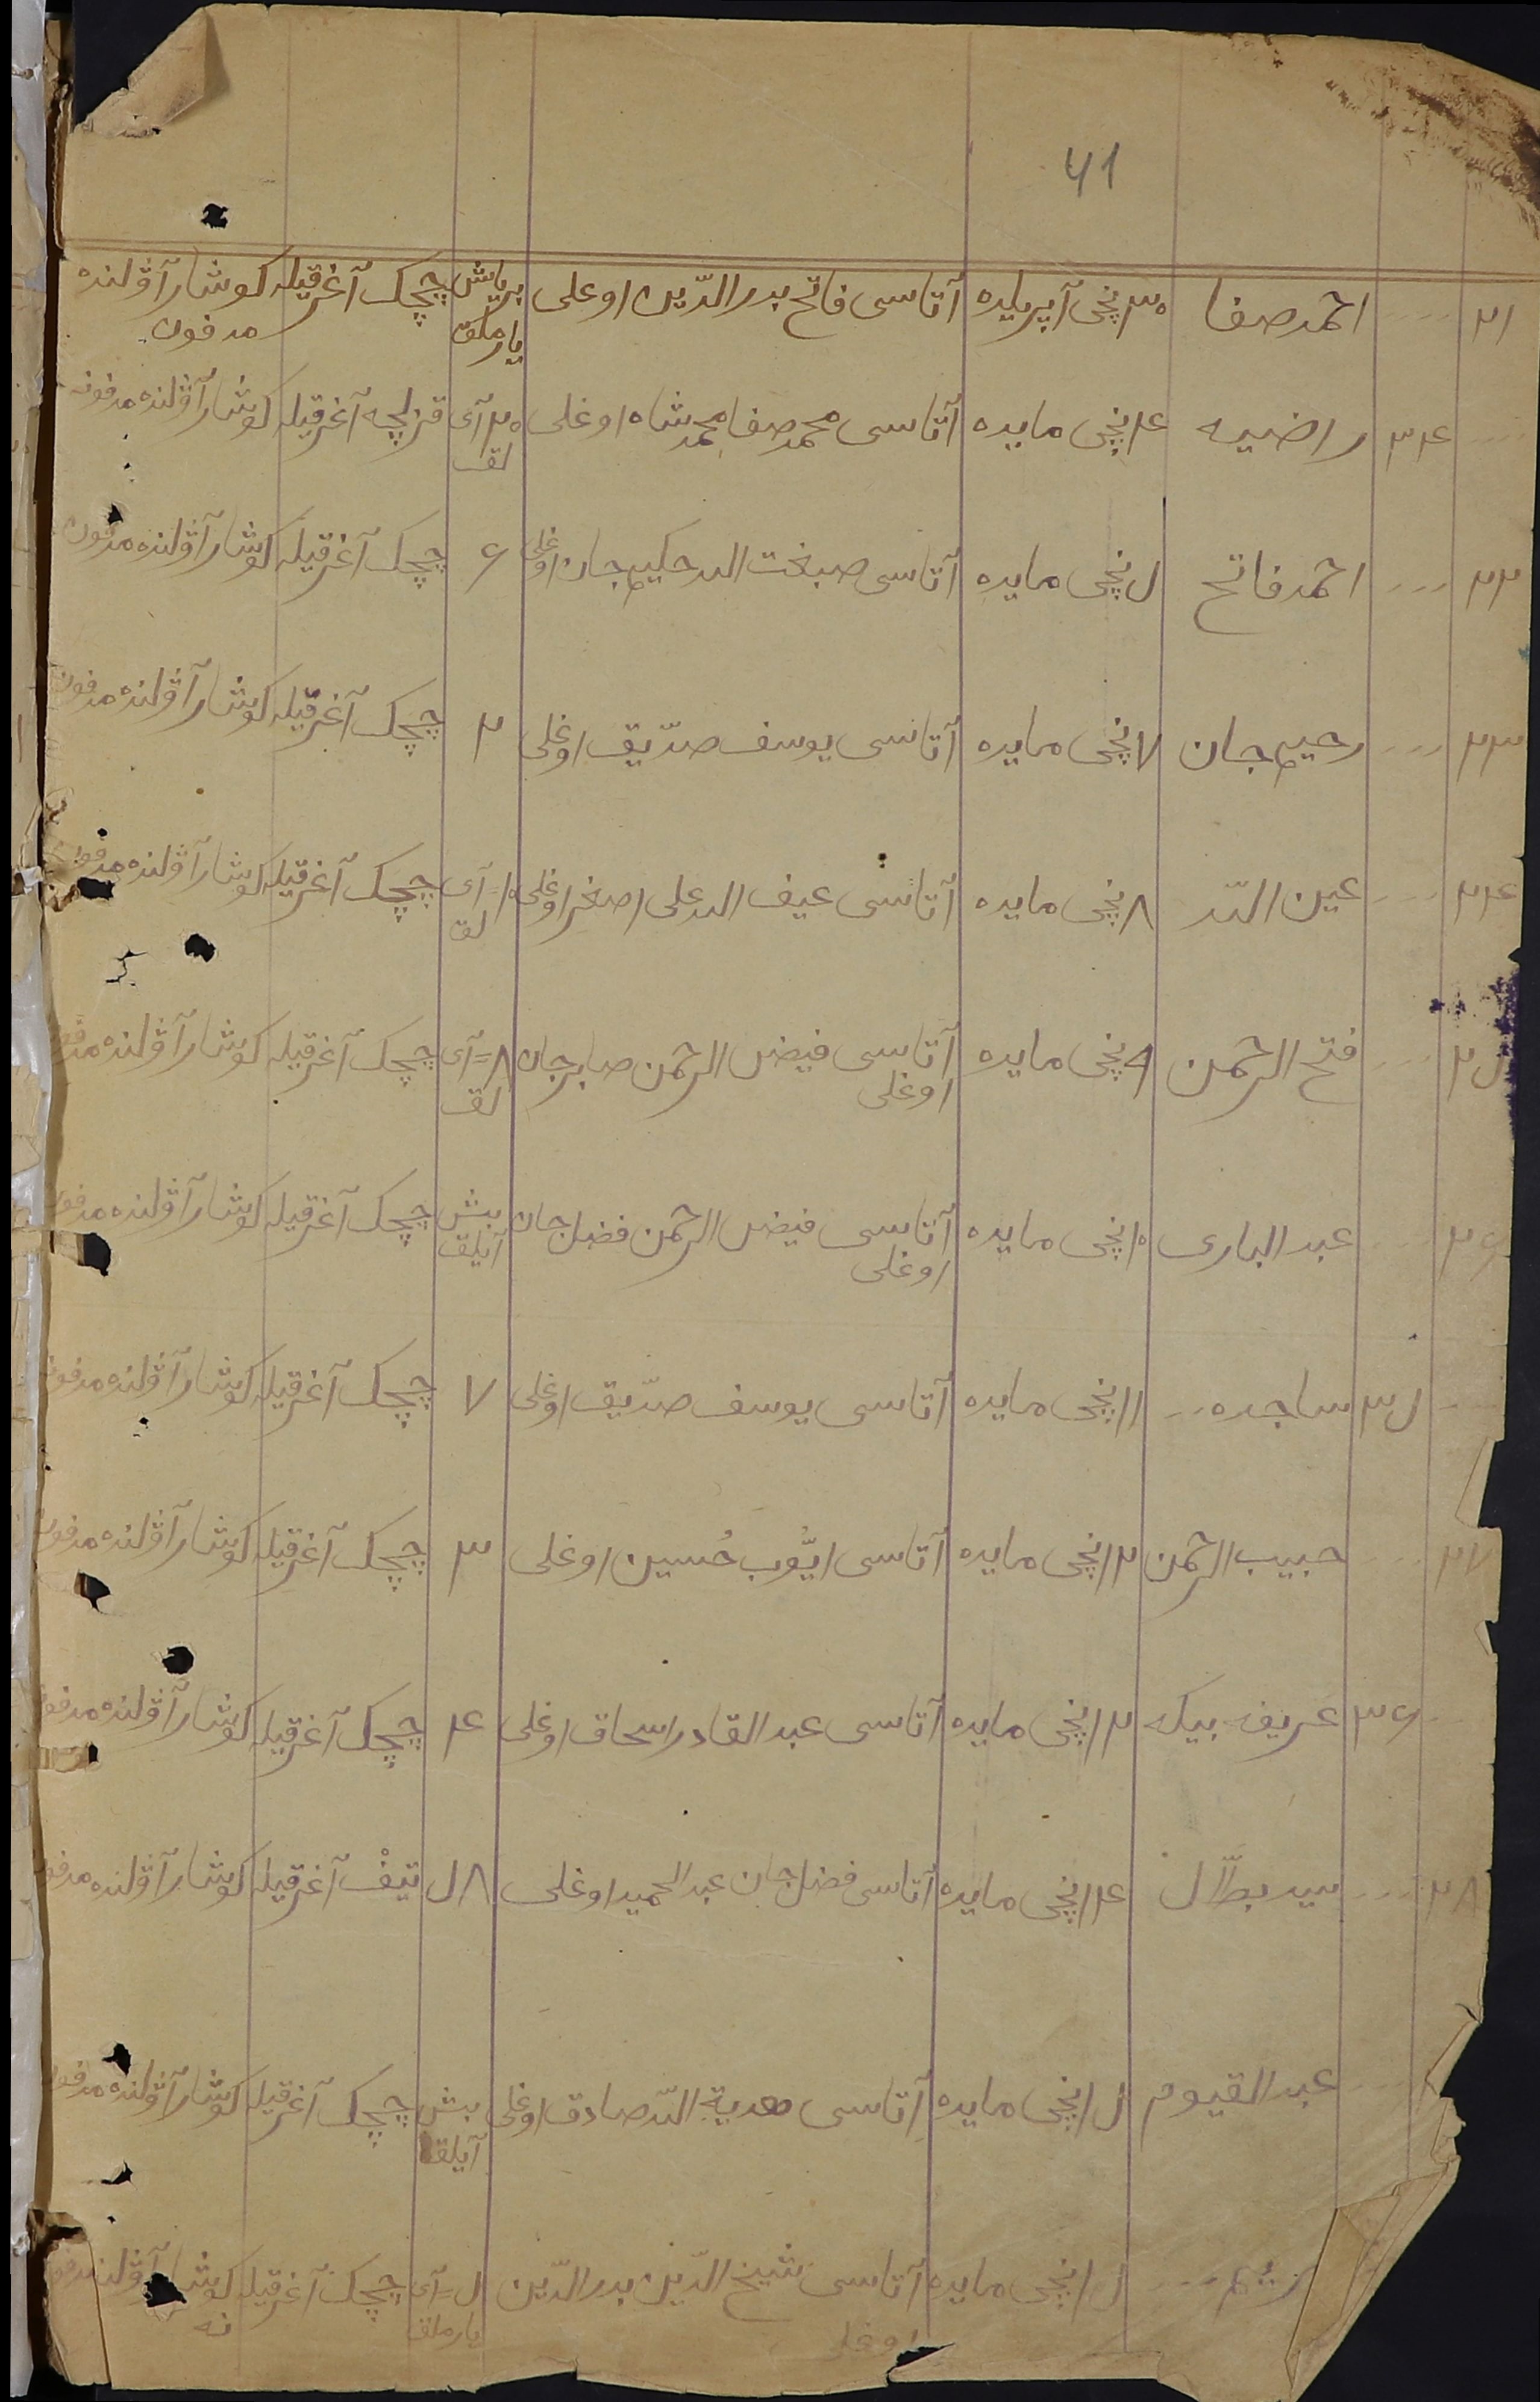 41
٢١ احمد صفا ٣٠نچی آپریلده آتاسی فاتح بدرالدّین اوغلی بریاش یارملق چچک آغرقیله کوشار آۋلنده مدفون
٣٤ راضیه ٤نچی مایده آتاسی محمدصفا محمدشاه اوغلی ٢٠ آی لق قزلچه آغرقیله کوشار آۋلنده مدفونه
٢٢ احمد فاتح ٥نچی مایده آتاسی صبغت الله حکیم جان اوغلی ۶ چچک آغرقیله کوشار آۋلنده مدفون
٢٣ رحیم جان ٧نچی مایده آتاسی یوسف صدّیق اوغلی ٢ چچک آغرقیله کوشار آۋلنده مدفون
٢٤ عین الله ٨نچی مایده آتاسی عیف الله علی اصغر اوغلی ١٠=آی لق چچک آغرقیله کوشار آۋلنده مدفون
٢٥ فتح الرحمن ٩نچی مایده آتاسی فیض الرحمن صابرجان اوغلی ٨=آی لق چچک آغرقیله کوشار آۋلنده
٢۶ عبد الباری ١٠نچی مایده آتاسی فیض الرحمن فضل جان اوغلی بش آیلق چچک آغرقیله کوشار آۋلنده مدفون
٣٥ ساجده ١١نچی مایده آتاسی یوسف صدّیق اوغلی ٧ چچک آغرقیله کوشار آۋلنده مدفونه
٢٧ حبیب الرحمن ١٢نچی مایده آتاسی ایّوب حُسین اوغلی ٣ چچک آغرقیله کوشار آۋلنده مدفون
٣۶ عریفه بیکه ١٢نچی مایده آتاسی عبد القادر اسحاق اوغلی ٤ چچک آغرقیله کوشار آۋلنده مدفونه
٢٨ سید بطّال ١٤نچی مایده آتاسی فضل جان عبد الحمید اوغلی ٨٥ تیفْ آغرقیله کوشار آۋلنده مدفون
عبد القیوم ١٥نچی مایده آتاسی هدیة الله صادق اوغلی بش آیلق چچک آغرقیله کوشار آۋلنده مدفون
١٥نچی مایده آتاسی شیخ الدّین بدرالدّین اوغلی ٥=آی یارملق چچک آغرقیله کوشار آۋلنده